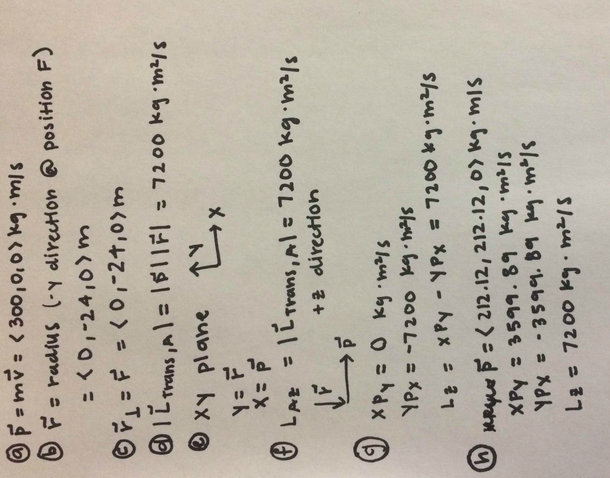 ⓐ p⃗ = mv⃗ = <300,0,0> kg·m/s
ⓑ r⃗ = radius (-y direction @ position F)
= <0,-24,0> m
ⓒ r⃗⊥ = r⃗ = <0,-24,0> m
ⓓ |L⃗trans,A| = |p⃗||r⃗| = 7200 kg·m²/s
ⓔ XY plane
Y
X
Y = r⃗
X = p⃗
ⓕ LAz = |L⃗trans,A| = 7200 kg·m²/s
r⃗
p⃗
+z direction
ⓖ XPy = 0 kg·m²/s
YPx = -7200 kg·m²/s
Lz = XPy - YPx = 7200 kg·m²/s
ⓗ p⃗ = <212.12, 212.12, 0> kg·m/s
XPy = 3599.89 kg·m²/s
YPx = -3599.89 kg·m²/s
Lz = 7200 kg·m²/s